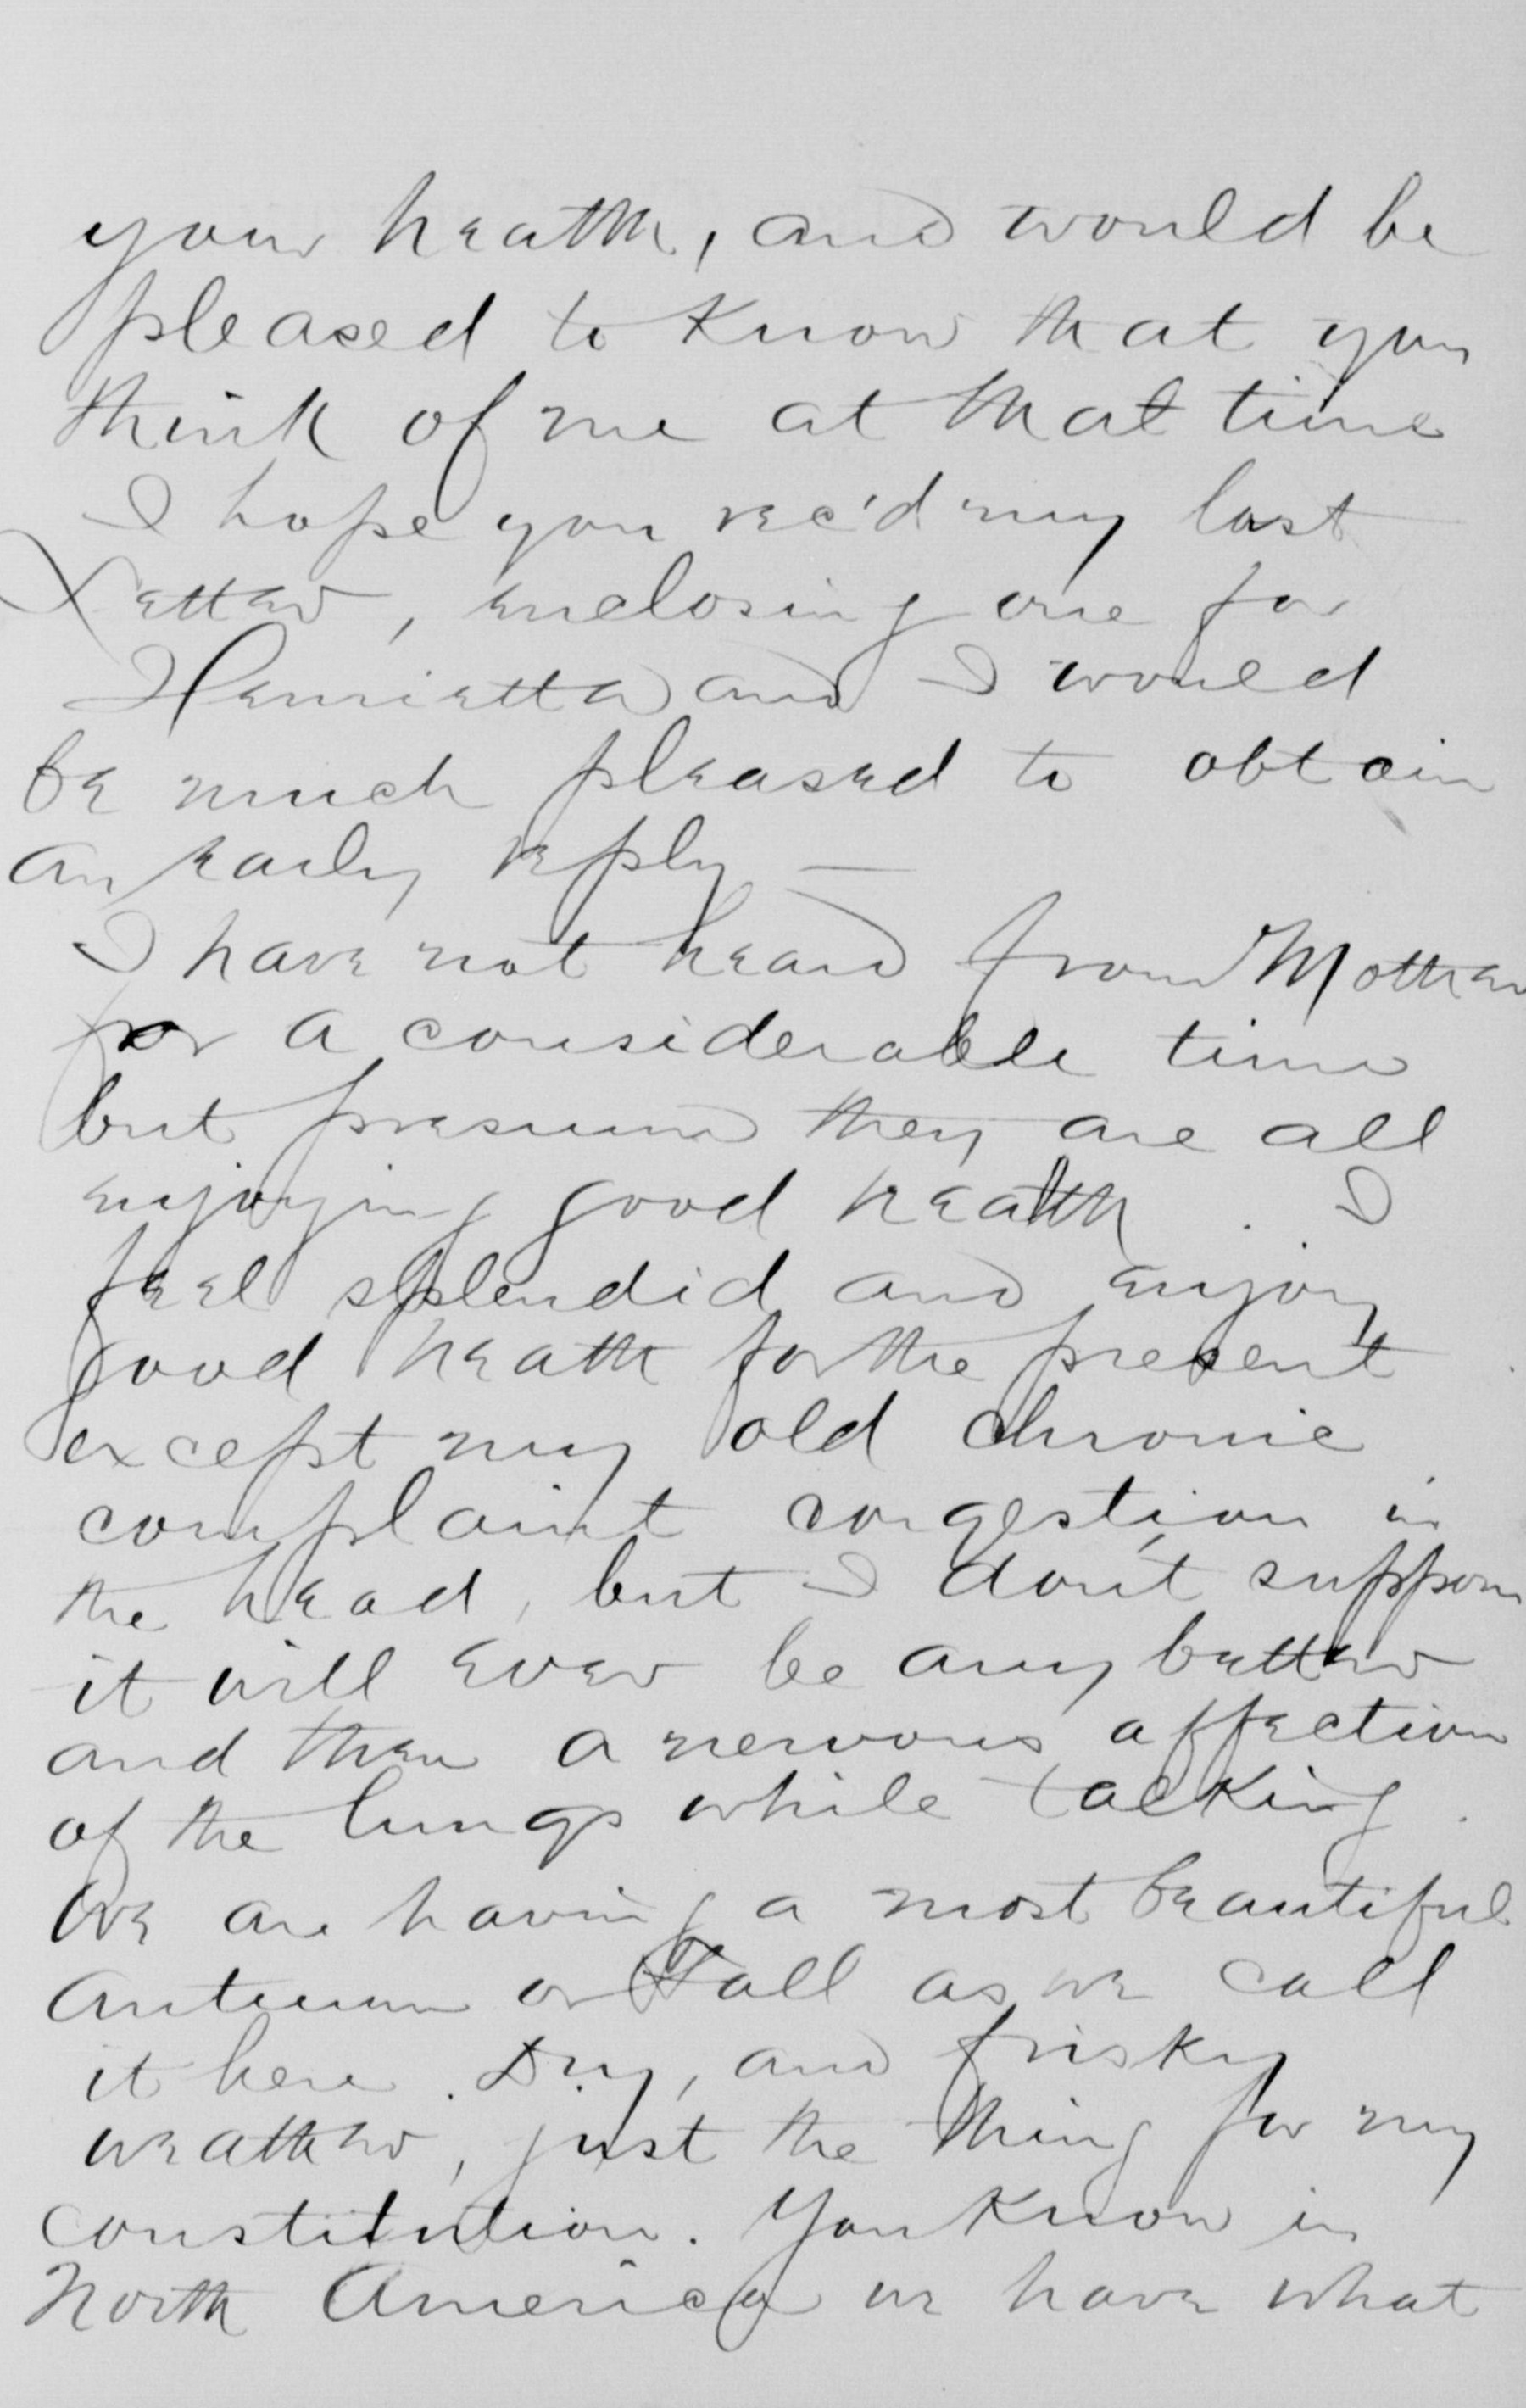 your heatth, and would be
pleased to know that you
think of me at that time
I hope you rec'd my last
Letter, enclosing one for
Henrietta and I would
be much pleased to obtain
an early reply —
I have not heard from Mother
for a considerable time
but presume they are all
enjoying good heatth. I
feel splendid and enjoy
good heatth for the present
except my old chronic
complaint congestion in
the head, but I don't suppose
it will ever be any better
and then a nervous affection
of the lungs while talking.
We are having a most beautiful
Autumn or Fall as we call
it here. Dry, and frisky
weather, just the thing for my
constitution. You know in
North America we have what